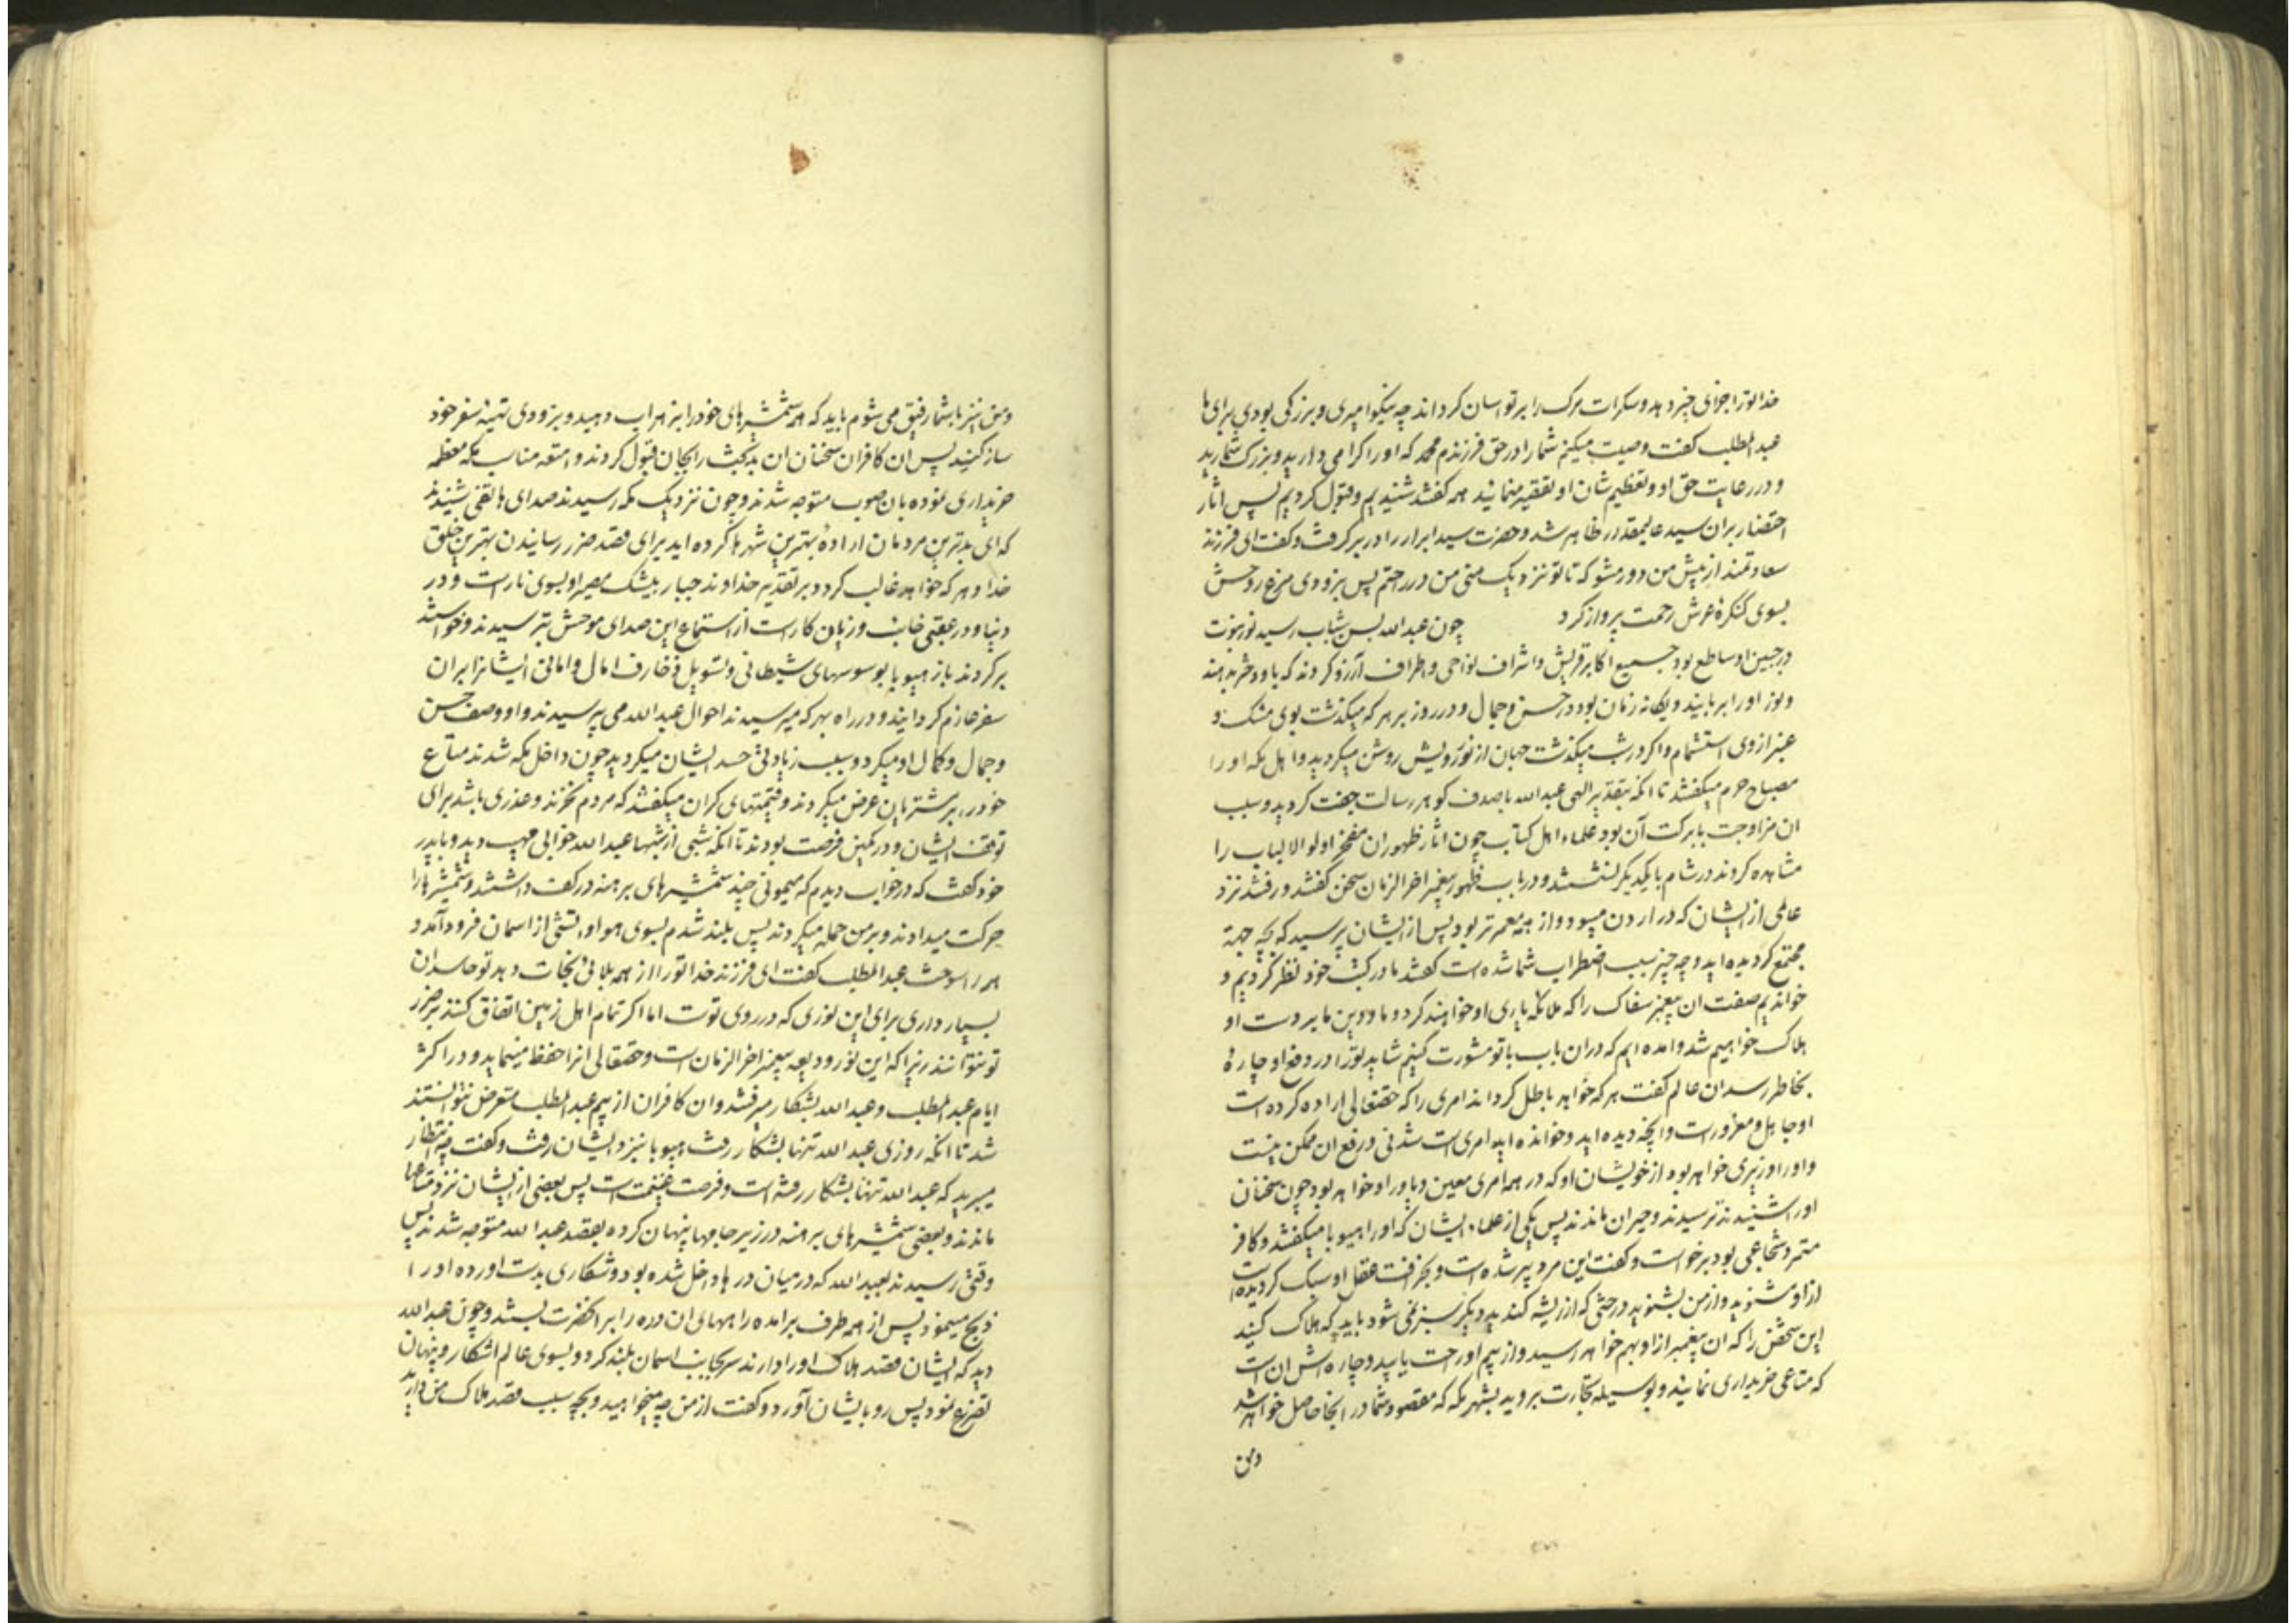 خدا تورا جزای خیر دهد و سکرات مرک را بر تو اسان کرداند چه نیکو امیری و بزرکی بودی برای ما
عبدالمطلب کفت وصیت میکنم شما را در حق فرزندم محمد که او را کرامی دارید و بزرک شمارید
و در رعایت حق او و تعظیم شان او تقصیر منمایید همه کفتند شنیدیم و قبول کردیم پس اثار
احتضار بران سید عالیمقدار ظاهر شد و حضرت سید ابرار را در بر کرفت و کفت ای فرزند
سعادتمند از پیش من دور مشو که تا تو نزدیک منی من در راحتم پس بزودی مرغ روحش
بسوی کنکرۀ عرش رحمت پرواز کرد چون عبدالله بسن شباب رسید نور نبوت
در جبین او ساطع بود جمیع اکابر قریش و اشراف نواحی و اطراف آرزو کردند که باو دختر بدهند
و نور او را بربایند و یکانه زمان بود در حسن و جمال و در روز بر هر که میکذشت بوی مشک و
عنبر از وی استشمام و اکر در شب میکذشت جهان از نور رویش روشن میکردید و اهل مکه او را
مصباح حرم میکفتند تا انکه بتقدیر الهی عبدالله با صدف کوهر رسالت جفت کردید و سبب
ان مزاوجت با برکت آن بود علماء اهل کتاب چون اثار ظهور ان مفخر اولوالالباب را
مشاهده کردند در شام با یکدیکر نشستند و در باب ظهور پیغمبر اخرالزمان سخن کفتند و رفتند نزد
عالمی از ایشان که در اردن میبود و از همه معمرتر بود پس از ایشان پرسید که بچه جهة
مجتمع کردیده اید و چه چیز سبب اضطراب شما شده است کفتند ما در کتب خود نظر کردیم و
خواندیم صفت ان پیغمبر سفاک را که ملائکه یاری او خواهند کرد و ما و دین ما بر دست او
هلاک خواهیم شد و امده ایم که دران باب با تو مشورت کنیم شاید تورا در دفع او چارۀ
بخاطر رسد ان عالم کفت هر که خواهد باطل کرداند امری را که حقتعالی اراده کرده است
او جاهل و مغرور است و انچه دیده اید و خوانده اید امری است شدنی و رفع ان ممکن نیست
و او را وزیری خواهد بود از خویشان او که در همه امری معین و یاور او خواهد بود چون سخنان
او را شنیدند ترسیدند و حیران ماندند پس یکی از علماء ایشان که او را هیوبا میکفتند و کافر
متمرد شجاعی بود برخواست و کفت این مرد پیر شده است و خرافت عقل او سبک کردیده است
از او مشنوید و از من بشنوید درختی که از ریشه کندید دیکر سبز نمی شود باید که هلاک کنید
این شخص را که ان پیغمبر از او بهم خواهد رسید و از بیم او راحت یابید و چاره اش ان است
که متاعی خریداری نمایید و بوسیله تجارت بروید بشهر مکه که مقصود شما در انجا حاصل خواهد شد
و من
و من نیز با شما رفیق می شوم باید که همه شمشیرهای خود را بزهر اب دهید و بزودی تهیۀ سفر خود
ساز کنید پس ان کافران سخنان ان بدبخت را بجان قبول کردند و امتعه مناسب مکه معظمه
خریداری نموده بان صوب متوجه شدند و چون نزدیک مکه رسیدند صدای هاتفی شنیدند
که ای بدترین مردمان ارادۀ بهترین شهرها کرده اید برای قصد ضرر رسانیدن بهترین خلق
خدا و هر که خواهد غالب کردد بر تقدیر خداوند جبار بیشک مصیر او بسوی نار است و در
دنیا و در عقبی خایب و زیان کار است از استماع این صدای موحش بترسیدند و خواستند
برکردند باز هیوبا بوسوسهای شیطانی و تسویل زخارف امال و امانی ایشانرا بران
سفر عازم کردانید و در راه بهر که میرسیدند احوال عبدالله می پرسیدند و او وصف حسن
و جمال و کمال او میکرد و سبب زیادتی حسد ایشان میکردید چون داخل مکه شدند متاع
خود را بر مشتریان عرض میکردند و قیمتهای کران میکفتند که مردم نخرند و عذری باشد برای
توقف ایشان و در کمین فرصت بودند تا انکه شبی از شبها عبدالله خوابی مهیب دید و با پدر
خود کفت که در خواب دیدم که میمونی چند شمشیرهای برهنه در کف داشتند و شمشیرها را
حرکت میدادند و بر من حمله میکردند پس بلند شدم بسوی هوا و اتشی از اسمان فرود آمد و
همه را سوخت عبدالمطلب کفت ای فرزند خدا تورا از همه بلائی نجات دهد تو حاسدان
بسیار داری برای این نوری که در روی توست اما اکر تمام اهل زمین اتفاق کنند بر ضرر
تو نتوانند زیرا که این نور ودیعه پیغمبر اخرالزمان است و حقتعالی انرا حفظ مینماید و در اکثر
ایام عبدالمطلب و عبدالله بشکار میرفتند و ان کافران از بیم عبدالمطلب متعرض نتوانستند
شد تا انکه روزی عبدالله تنها بشکار رفت هیوبا نزد ایشان رفت و کفت چه انتظار
میبرید که عبدالله تنها بشکار رفته است و فرصت غنیمت است پس بعضی از ایشان نزد متاعها
ماندند و بعضی شمشیرهای برهنه در زیر جامها پنهان کرده بقصد عبدالله متوجه شدند پس
وقتی رسیدند بعبدالله که در میان درها داخل شده بود و شکاری بدست اورده او را
ذبح مینمود پس از همه طرف برامده راههای ان دره را بر انحضرت بستند و چون عبدالله
دید که ایشان قصد هلاک او را دارند سر بجانب اسمان بلند کرد و بسوی عالم اشکار و پنهان
تضرع نمود پس رو بایشان آورد و کفت از من چه میخواهید و بچه سبب قصد هلاک من دارید